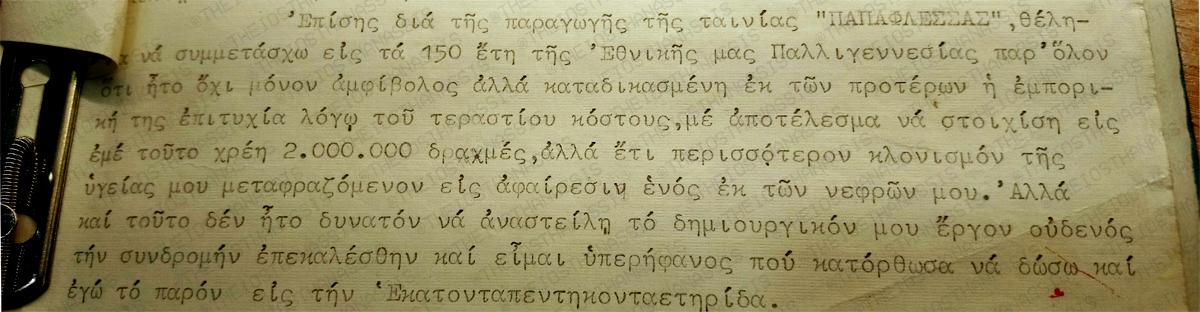 Ἐπίσης διά τῆς παραγωγῆς τῆς ταινίας "ΠΑΠΑΦΛΕΣΣΑΣ",θέλη-
σα νά συμμετάσχω εἰς τά 150 ἔτη τῆς Ἐθνικῆς μας Παλλιγεννεσίας παρ' ὅλον
ὅτι ἦτο ὄχι μόνον ἀμφίβολος ἀλλά καταδικασμένη ἐκ τῶν προτέρων ἡ ἐμπορι-
κή της ἐπιτυχία λόγῳ τοῦ τεραστίου κόστους,μέ ἀποτέλεσμα νά στοιχίση εἰς
ἐμέ τοῦτο χρέη 2.000.000 δραχμές,ἀλλά ἔτι περισσότερον κλονισμόν τῆς
ὑγείας μου μεταφραζόμενον εἰς ἀφαίρεσιν ἑνός ἐκ τῶν νεφρῶν μου. Ἀλλά
καί τοῦτο δέν ἦτο δυνατόν νά ἀναστείλῃ τό δημιουργικόν μου ἔργον οὐδενός
τήν συνδρομήν ἐπεκαλέσθην καί εἶμαι ὑπερήφανος πού κατόρθωσα νά δώσω καί
ἐγώ τό παρόν εἰς τήν Ἑκατονταπεντηκονταετηρίδα.